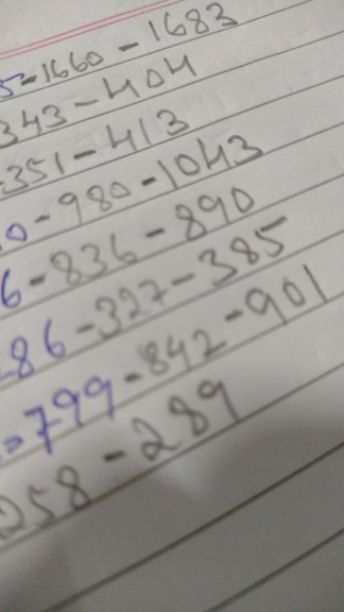 5-1660-1683
343-404
351-413
0-980-1043
6-836-890
86-327-385
799-842-901
258-289